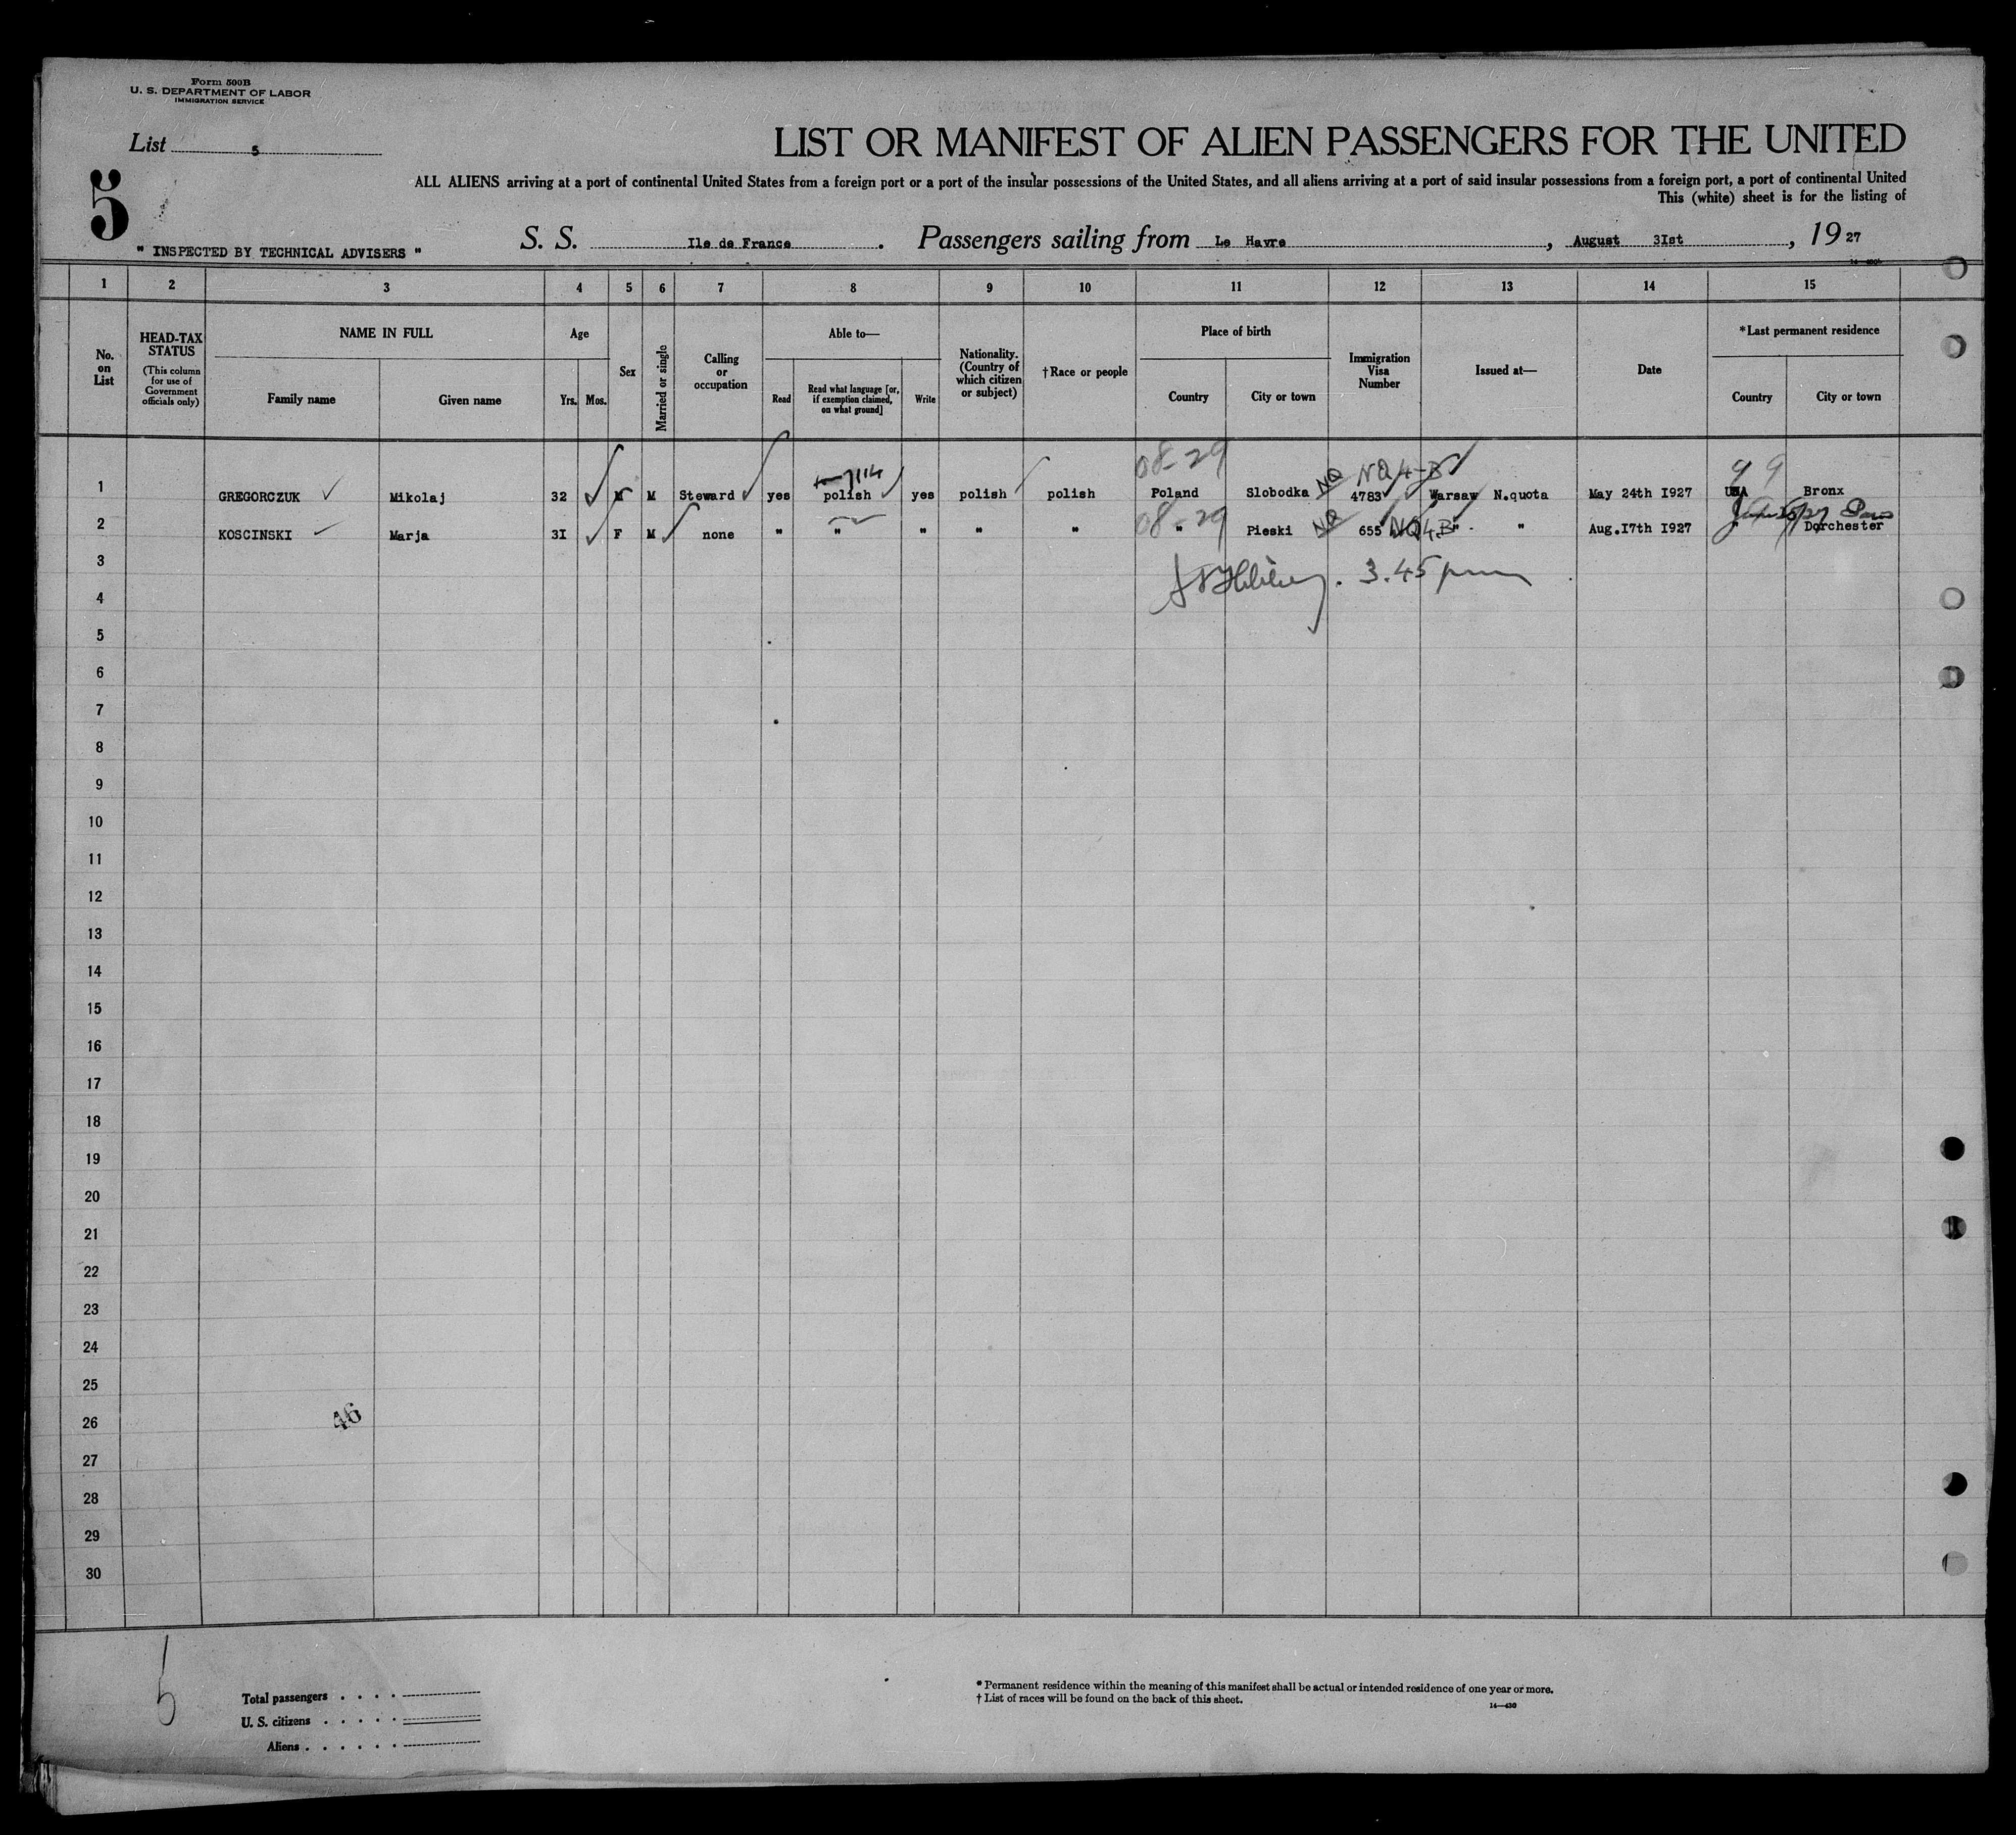 Form 500B
U. S. DEPARTMENT OF LABOR
IMMIGRATION SERVICE
List 5
LIST OR MANIFEST OF ALIEN PASSENGERS FOR THE UNITED
5
ALL ALIENS arriving at a port of continental United States from a foreign port or a port of the insular possessions of the United States, and all aliens arriving at a port of said insular possessions from a foreign port, a port of continental United
This (white) sheet is for the listing of
" INSPECTED BY TECHNICAL ADVISERS "
S. S. Ile de France . Passengers sailing from Le Havre , August 3Ist , 19 27
1 2 3 4 5 6 7 8 9 10 11 12 13 14 15
No. on List
HEAD-TAX STATUS
(This column for use of Government officials only)
NAME IN FULL
Family name Given name
Age
Yrs. Mos.
Sex
Married or single
Calling or occupation
Able to—
Read
Read what language [or, if exemption claimed, on what ground]
Write
Nationality. (Country of which citizen or subject)
†Race or people
Place of birth
Country City or town
Immigration Visa Number
Issued at—
Date
*Last permanent residence
Country City or town
08-29 NQ 4-B 9 9
1 GREGORCZUK Mikolaj 32 M M Steward yes polish yes polish polish Poland Slobodka NQ 4783 Warsaw N.quota May 24th I927 USA Bronx
08-29
2 KOSCINSKI Marja 3I F M none " " " " " " Pieski NQ 655 NQ 4.B " " Aug.I7th I927 " Dorchester
3.45 pm
3
4
5
6
7
8
9
10
11
12
13
14
15
16
17
18
19
20
21
22
23
24
25
26
46
27
28
29
30
5
Total passengers
U. S. citizens
Aliens
* Permanent residence within the meaning of this manifest shall be actual or intended residence of one year or more.
† List of races will be found on the back of this sheet.
14—430